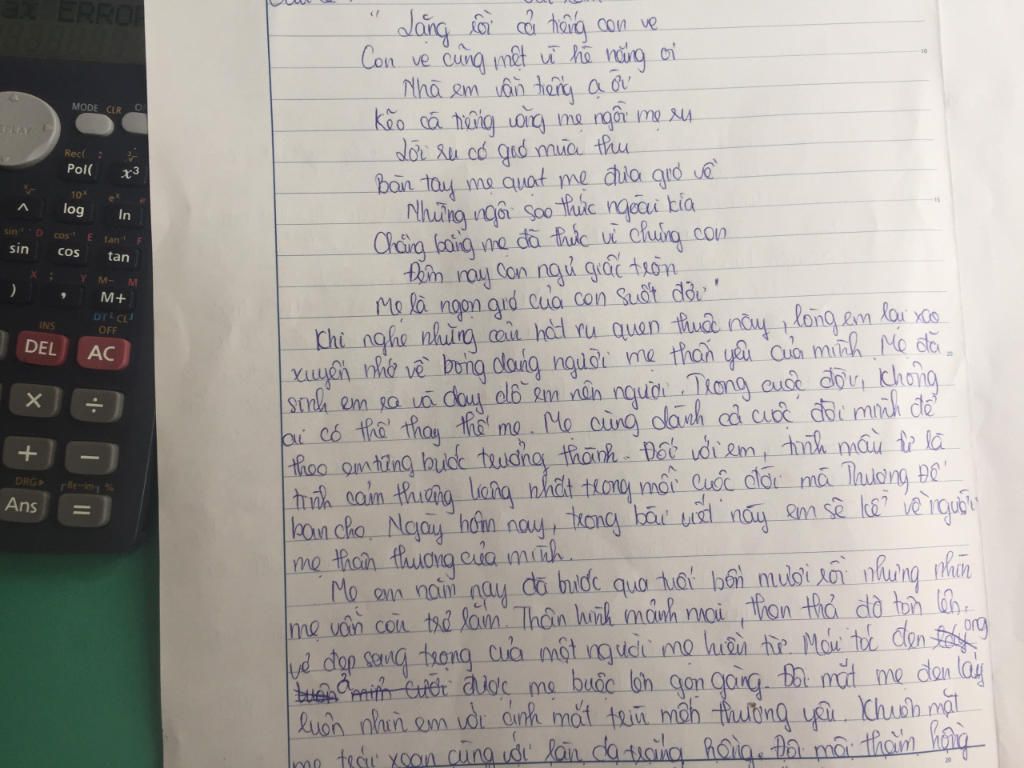 ax ERROR
MODE CLR
REPLAY
Rec( :
Pol( x³
10ˣ eˣ e
^ log ln
sin⁻¹ D cos⁻¹ E tan⁻¹ F
sin cos tan
X ; Y M- M
) , M+
DT CL
INS OFF
DEL AC
× ÷
+ −
DRG▸ Re-Im %
Ans =
" Lặng rồi cả tiếng con ve
Con ve cũng mệt vì hè nắng oi
Nhà em vẫn tiếng ạ ời
Kẽo cà tiếng võng mẹ ngồi mẹ ru
Lời ru có gió mùa thu
Bàn tay mẹ quạt mẹ đưa gió về
Những ngôi sao thức ngoài kia
Chẳng bằng mẹ đã thức vì chúng con
Đêm nay con ngủ giấc tròn
Mẹ là ngọn gió của con suốt đời "
Khi nghe những câu hát ru quen thuộc này, lòng em lại xao
xuyến nhớ về bóng dáng người mẹ thân yêu của mình. Mẹ đã
sinh em ra và dạy dỗ em nên người. Trong cuộc đời, không
ai có thể thay thế mẹ. Mẹ cũng dành cả cuộc đời mình để
theo em từng bước trưởng thành. Đối với em, tình mẫu tử là
tình cảm thương liêng nhất trong mỗi cuộc đời mà Thượng Đế
ban cho. Ngày hôm nay, trong bài viết này em sẽ kể về người
mẹ thân thương của mình.
Mẹ em năm nay đã bước qua tuổi bốn mươi rồi nhưng nhìn
mẹ vẫn còn trẻ lắm. Thân hình mảnh mai, thon thả đã tôn lên
vẻ đẹp sang trọng của một người mẹ hiền từ. Mái tóc đen óng
ả được mẹ buộc lên gọn gàng. Đôi mắt mẹ đen láy
luôn nhìn em với ánh mắt trìu mến thương yêu. Khuôn mặt
mẹ trái xoan cùng với làn da trắng hồng. Đôi môi thắm hồng